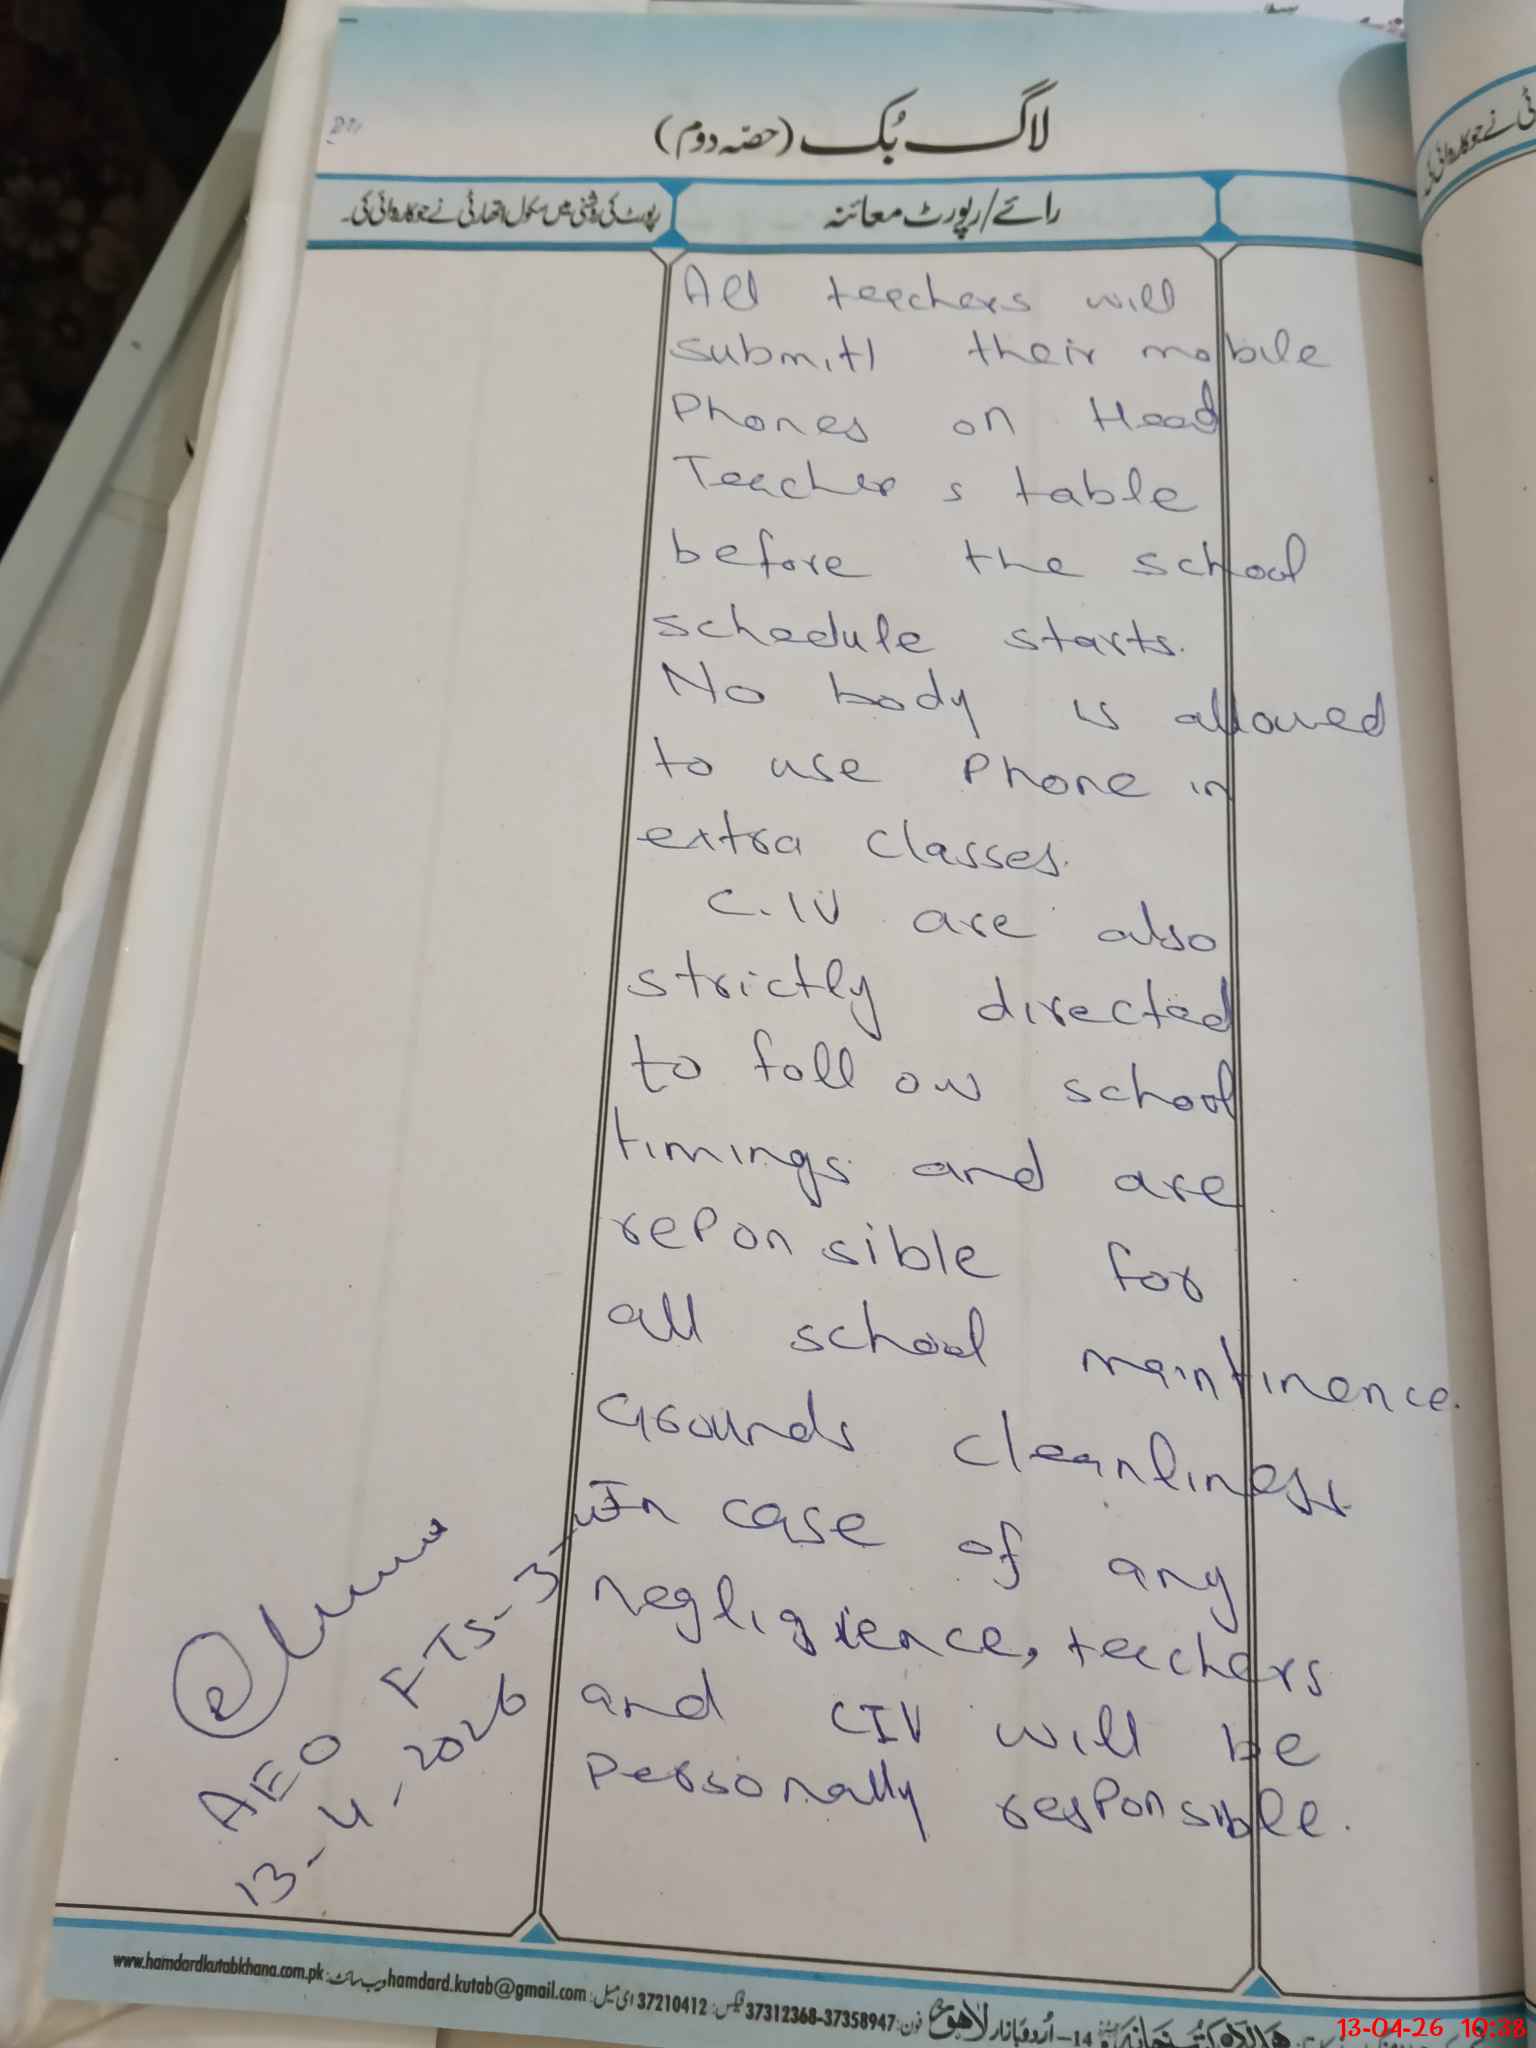 لاگ بُک (حصّہ دوم)
رائے/رپورٹ معائنہ
رپورٹ کی روشنی میں سکول اتھارٹی نے جو کارروائی کی۔
All teachers will
submitt their mobile
Phones on Head
Teacher s table
before the school
schedule starts.
No body is allowed
to use Phone in
extra classes.
C.IV are also
strictly directed
to follow school
timings and are
reponsible for
all school maintinence.
Grounds cleanliness
In case of any
negligience, teachers
and CIV will be
Personally responsible.
AEO FTS-3-W
13-4-2026
www.hamdardkutabkhana.com.pk ویب سائٹ: hamdard.kutab@gmail.com ای میل: 37210412 فیکس: 37312368-37358947 فون: لاہور اُردو بازار 14-
13-04-26 10:38